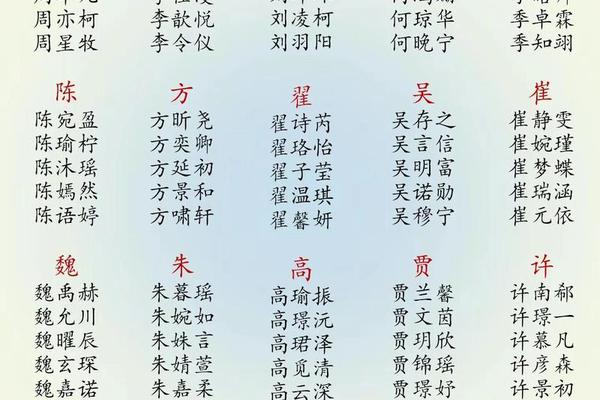 周亦柯 李歆悦 刘凌柯 何琼华 季卓霖
周星牧 李令仪 刘羽阳 何晚宁 季知翊
陈 方 翟 吴 崔
陈宛盈 方昕尧 翟诗芮 吴存之 崔静雯
陈瑜柠 方奕卿 翟珞怡 吴言信 崔婉瑾
陈沐瑶 方延初 翟子莹 吴明富 崔梦蝶
陈嫣然 方景和 翟温琪 吴诺勋 崔瑞涵
陈语婷 方啸轩 翟馨妍 吴穆宁 崔元依
魏 朱 高 贾 许
魏禹赫 朱暮瑶 高瑜振 贾兰馨 许南郗
魏允川 朱婉如 高璟沅 贾文茵 许璟一
魏曜辰 朱姝言 高珺泽 贾玥欣 许慕凡
魏玄琛 朱婧萱 高觅清 贾锦瑶 许彦森
魏嘉诺 朱嘉柔 高云深 贾璟妤 许景初